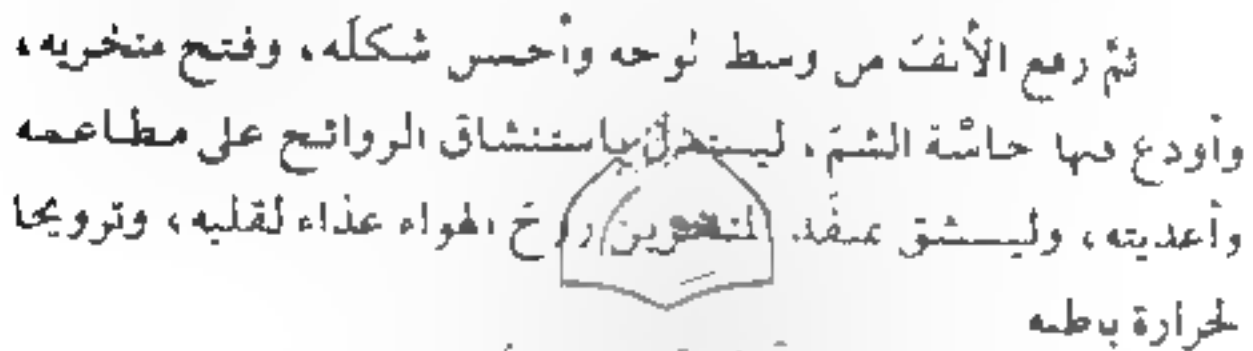 ثمّ رفع الأنفَ من وسط الوجه وأحسن شكلَه، وفتح منخريه،
وأودع فيها حاسّة الشمّ، ليستدلّ باستنشاق الروائح على مطاعمه
وأغذيته، وليستنشق بمنفَذ المنخرين روحَ الهواء غذاء لقلبه، وترويحا
لحرارة باطنه